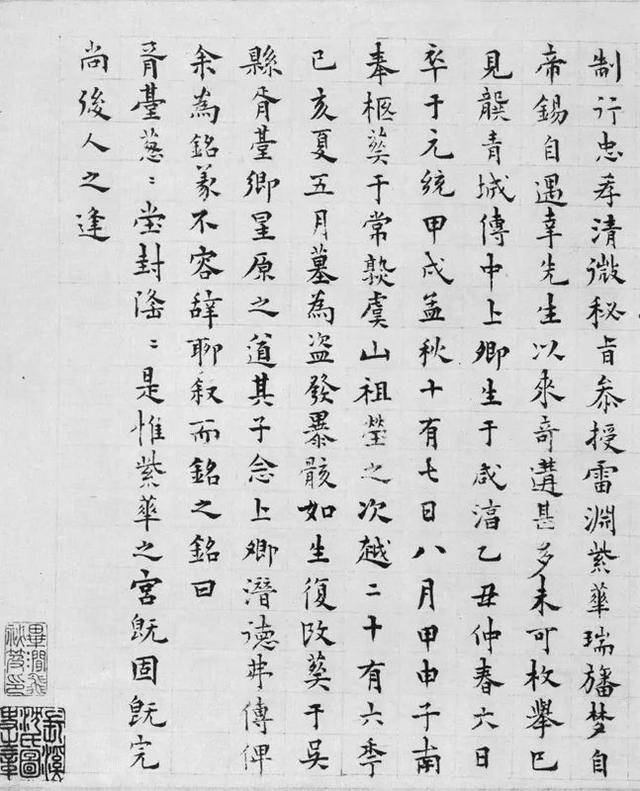 制行忠孝清微秘旨叅授雷淵紫華瑞旛梦自
帝錫自遇幸先生以來奇遘甚多未可枚舉已
見龔青城傳中上卿生于咸淳乙丑仲春六日
卒于元統甲戌孟秋十有七日八月甲申子南
奉柩葬于常熟虞山祖塋之次越二十有六季
己亥夏五月墓為盜發暴骸如生復改葬于吴
縣胥臺卿星原之道其子念上卿潛德弗傳俾
余為銘義不容辞聊叙而銘之銘曰
胥臺蔥〻堂封〻是惟紫華之宮旣固旣完
尚後人之逢
畢澗飛秘笈印
溪沈氏圖章